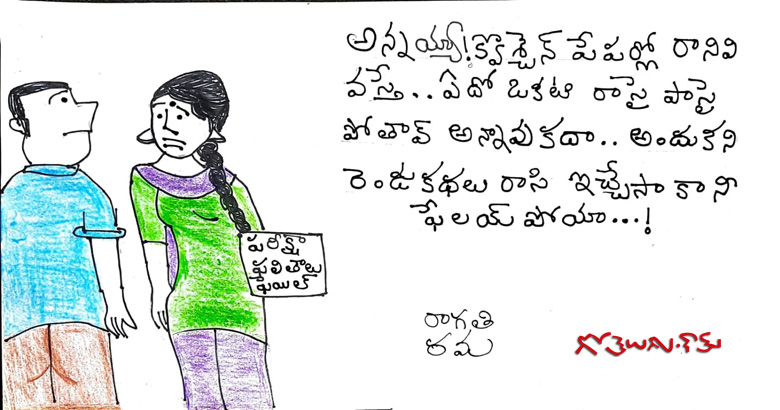 అన్నయ్యా! క్వొశ్చెన్ పేపర్లో రానివి
వస్తే.. ఏదో ఒకటి రాసై పాసై
పోతావ్ అన్నావుకదా.. అందుకని
రెండు కథలు రాసి ఇచ్చేసా కాని
ఫేలయ్ పోయా...!
పరీక్షా
ఫలితాలు
ఫెయిల్
రాగతి
రమ
గోతెలుగు.కామ్